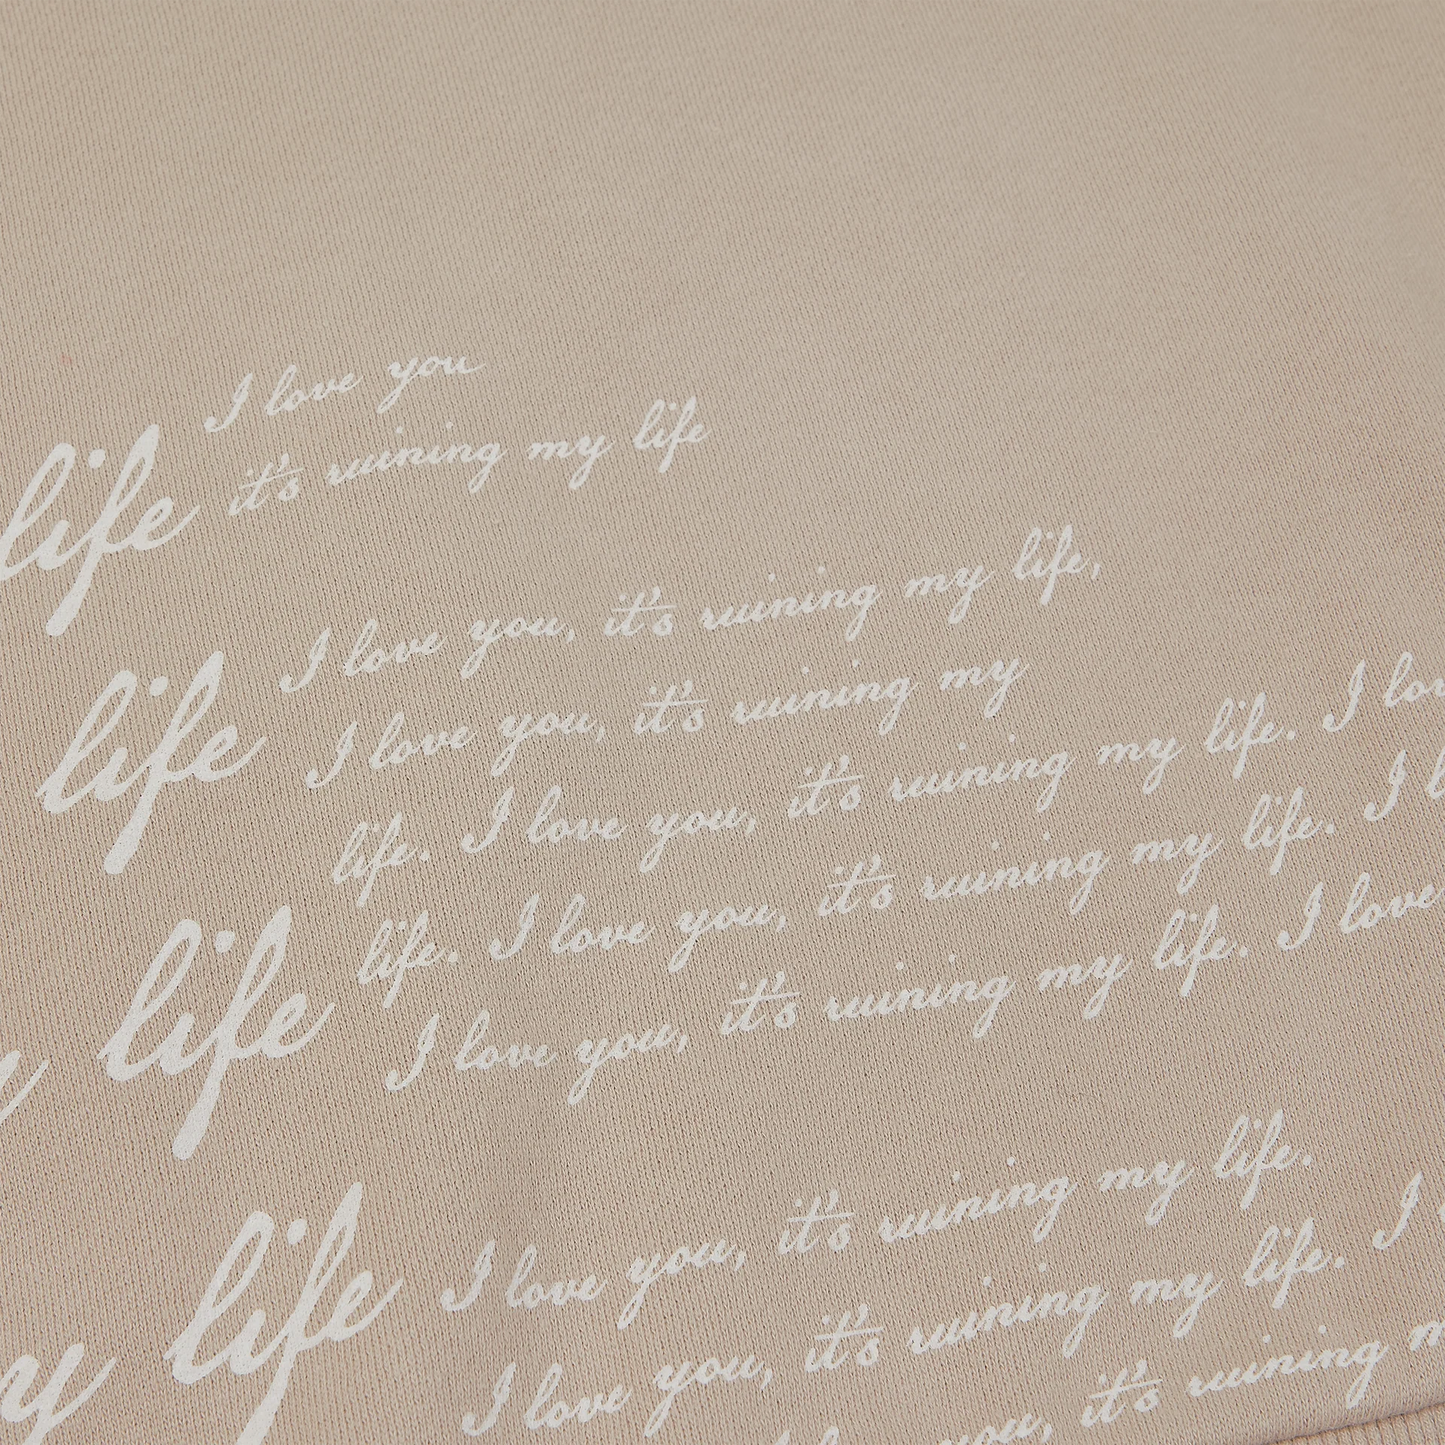 I love you
life it's ruining my life
I love you, it's ruining my life,
life I love you, it's ruining my
life. I love you, it's ruining my life. I
life. I love you, it's ruining my life. I
life I love you, it's ruining my life. I love
I love you, it's ruining my life.
life I love you, it's ruining my life. I
it's ruining